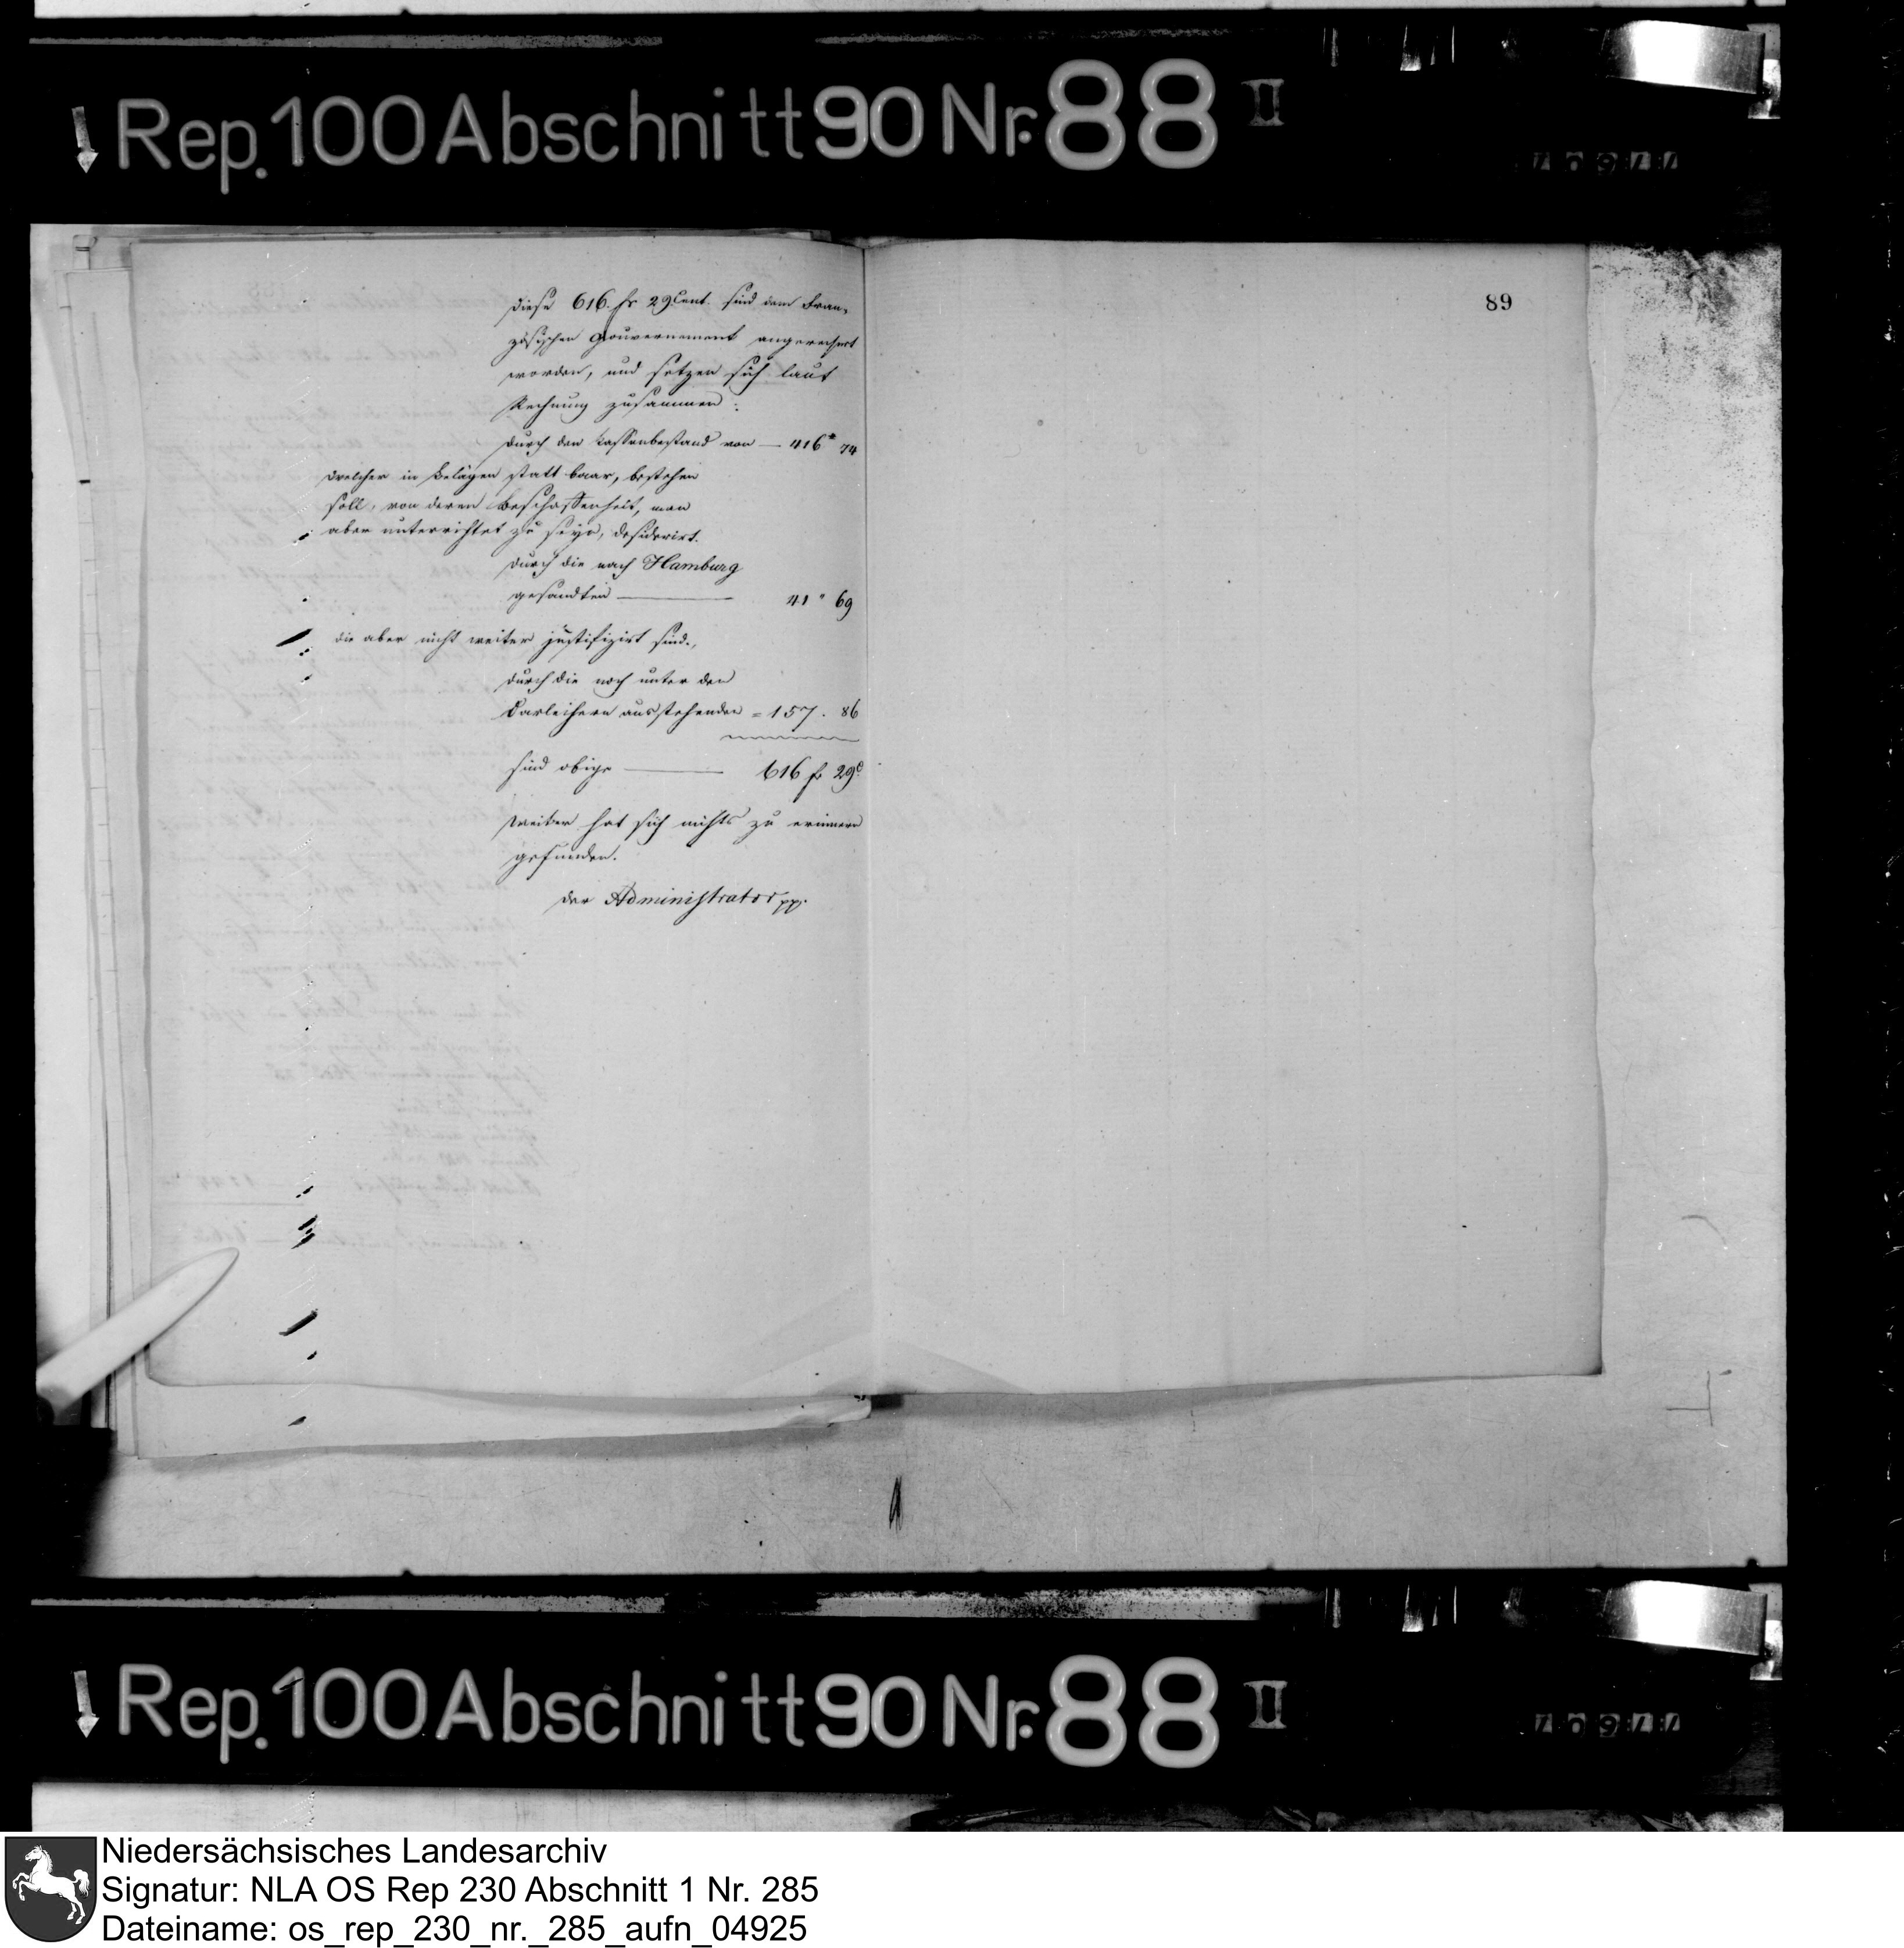 Rep. 100 Abschnitt 90 Nr. 88 II
89
Diese 616. fr 29 Cent. sind dem Fran-
zösischen Gouvernement angerechnet
worden, und setzen sich laut
Rechnung zusammen:
Durch den Cassenbestand von — 416 " 74
Welcher in Belägen statt baar, bestehen
soll, von deren Beschaffenheit, man
aber unterrichtet zu seyn, desiderirt.
Durch die nach Hamburg
gesandten — 41 " 69
die aber nicht weiter justifizirt sind.,
Durch die noch unter den
Darleihern ausstehenden = 157. 86
sind obige — 616 fr 29 c
Weiter hat sich nichts zu erinnern
gefunden.
der Administrator pp.
Rep. 100 Abschnitt 90 Nr. 88 II
Niedersächsisches Landesarchiv
Signatur: NLA OS Rep 230 Abschnitt 1 Nr. 285
Dateiname: os_rep_230_nr._285_aufn_04925